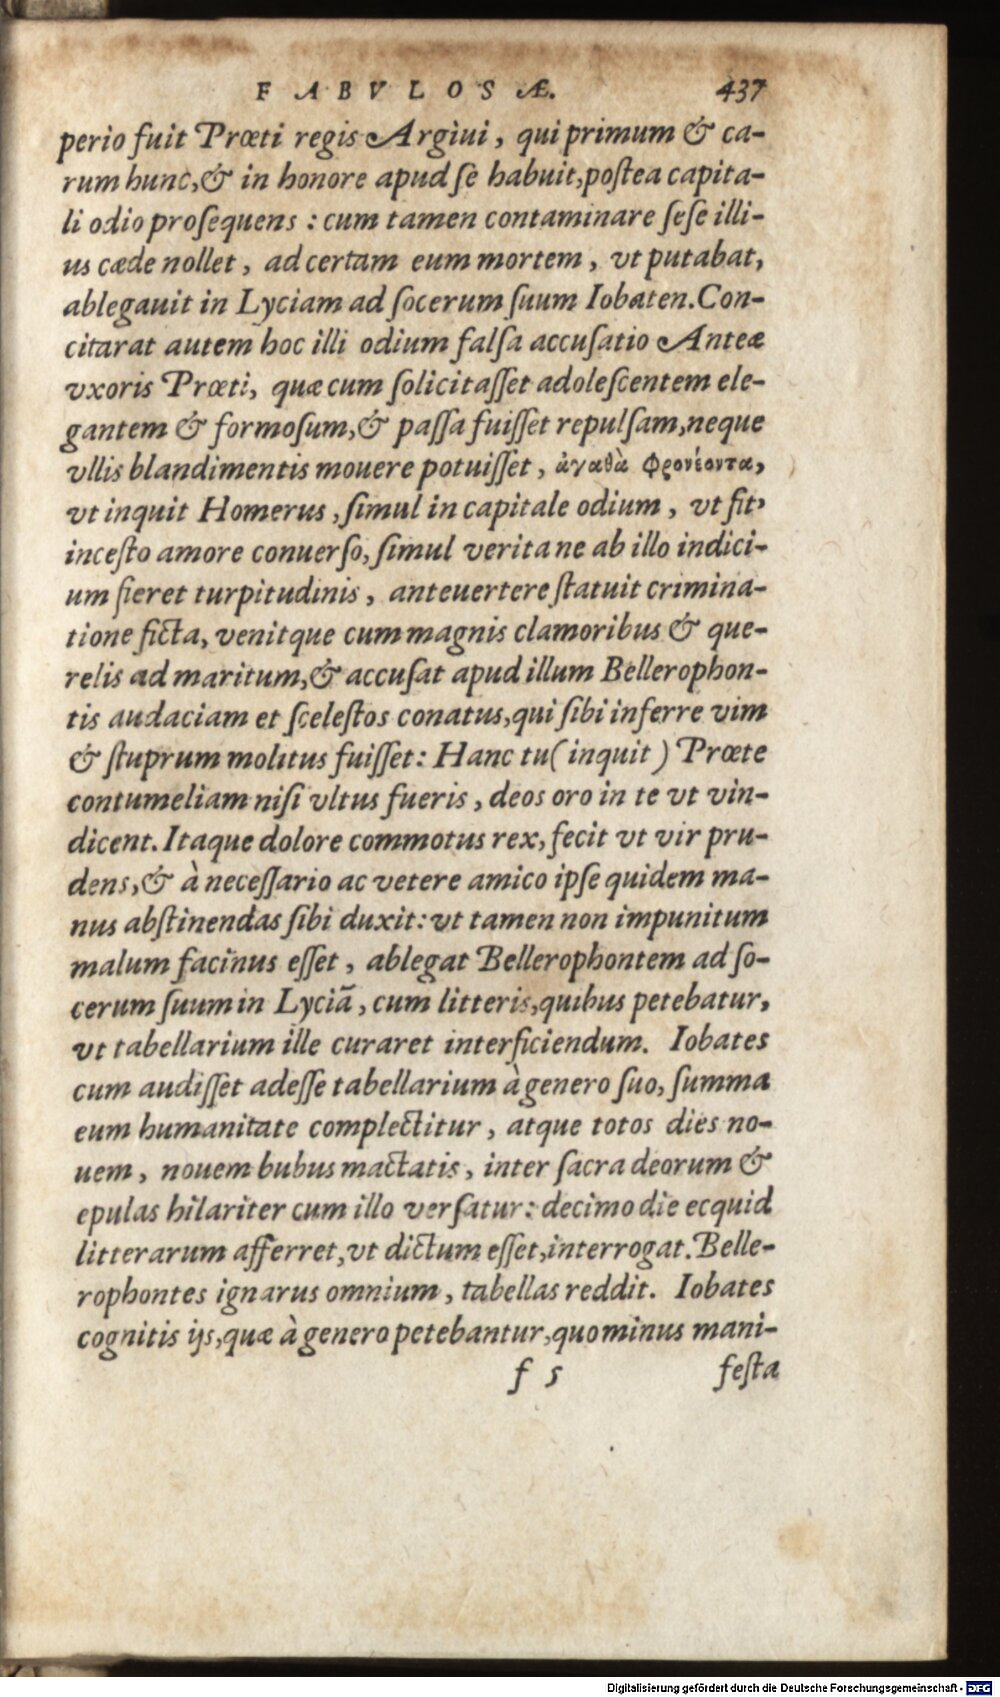 FABVLOSÆ. 437
perio fuit Prœti regis Argiui, qui primum & ca-
rum hunc,& in honore apud se habuit,postea capita-
li odio prosequens : cum tamen contaminare sese illi-
us cæde nollet, ad certam eum mortem, vt putabat,
ablegauit in Lyciam ad socerum suum Iobaten.Con-
citarat autem hoc illi odium falsa accusatio Anteæ
vxoris Prœti, quæ cum solicitasset adolescentem ele-
gantem & formosum,& passa fuisset repulsam,neque
vllis blandimentis mouere potuisset, ἀγαθὰ φρονέοντα,
vt inquit Homerus, simul in capitale odium, vt fit,
incesto amore conuerso, simul verita ne ab illo indici-
um fieret turpitudinis, anteuertere statuit crimina-
tione ficta, venitque cum magnis clamoribus & que-
relis ad maritum,& accusat apud illum Bellerophon-
tis audaciam et scelestos conatus,qui sibi inferre vim
& stuprum molitus fuisset: Hanc tu (inquit) Prœte
contumeliam nisi vltus fueris, deos oro in te vt vin-
dicent. Itaque dolore commotus rex, fecit vt vir pru-
dens,& à necessario ac vetere amico ipse quidem ma-
nus abstinendas sibi duxit: vt tamen non impunitum
malum facinus esset, ablegat Bellerophontem ad so-
cerum suum in Lyciā, cum litteris,quibus petebatur,
vt tabellarium ille curaret interficiendum. Iobates
cum audisset adesse tabellarium à genero suo, summa
eum humanitate complectitur, atque totos dies no-
uem, nouem bubus mactatis, inter sacra deorum &
epulas hilariter cum illo versatur: decimo die ecquid
litterarum afferret,vt dictum esset,interrogat. Belle-
rophontes ignarus omnium, tabellas reddit. Iobates
cognitis ijs,quæ à genero petebantur,quominus mani-
f 5 festa
Digitalisierung gefördert durch die Deutsche Forschungsgemeinschaft - DFG